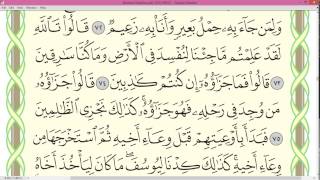 وَلِمَن جَآءَ بِهِۦ حِمْلُ بَعِيرٍ وَأَنَا۠ بِهِۦ زَعِيمٌ ٧٢ قَالُوا۟ تَٱللَّهِ
لَقَدْ عَلِمْتُم مَّا جِئْنَا لِنُفْسِدَ فِى ٱلْأَرْضِ وَمَا كُنَّا سَٰرِقِينَ
٧٣ قَالُوا۟ فَمَا جَزَٰٓؤُهُۥٓ إِن كُنتُمْ كَٰذِبِينَ ٧٤ قَالُوا۟ جَزَٰٓؤُهُۥ
مَن وُجِدَ فِى رَحْلِهِۦ فَهُوَ جَزَٰٓؤُهُۥ كَذَٰلِكَ نَجْزِى ٱلظَّٰلِمِينَ
٧٥ فَبَدَأَ بِأَوْعِيَتِهِمْ قَبْلَ وِعَآءِ أَخِيهِ ثُمَّ ٱسْتَخْرَجَهَا مِن
وِعَآءِ أَخِيهِ كَذَٰلِكَ كِدْنَا لِيُوسُفَ مَا كَانَ لِيَأْخُذَ أَخَاهُ